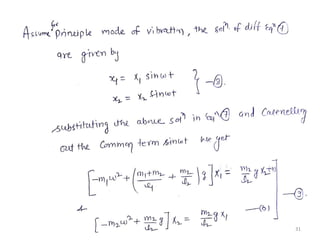 Assume the principle mode of vibration, the solⁿ of diff Eqⁿ ①
are given by
x₁ = X₁ sinωt
x₂ = X₂ sinωt } —②.
substituting the above solⁿ in Eqⁿ ① and Cancelling
out the Common term sinωt we get
[-m₁ω² + (m₁+m₂/l₁ + m₂/l₂) g] X₁ = m₂/l₂ g X₂ —(a)
& —③.
[-m₂ω² + m₂/l₂ g] X₂ = m₂/l₂ g X₁ —(b)
31